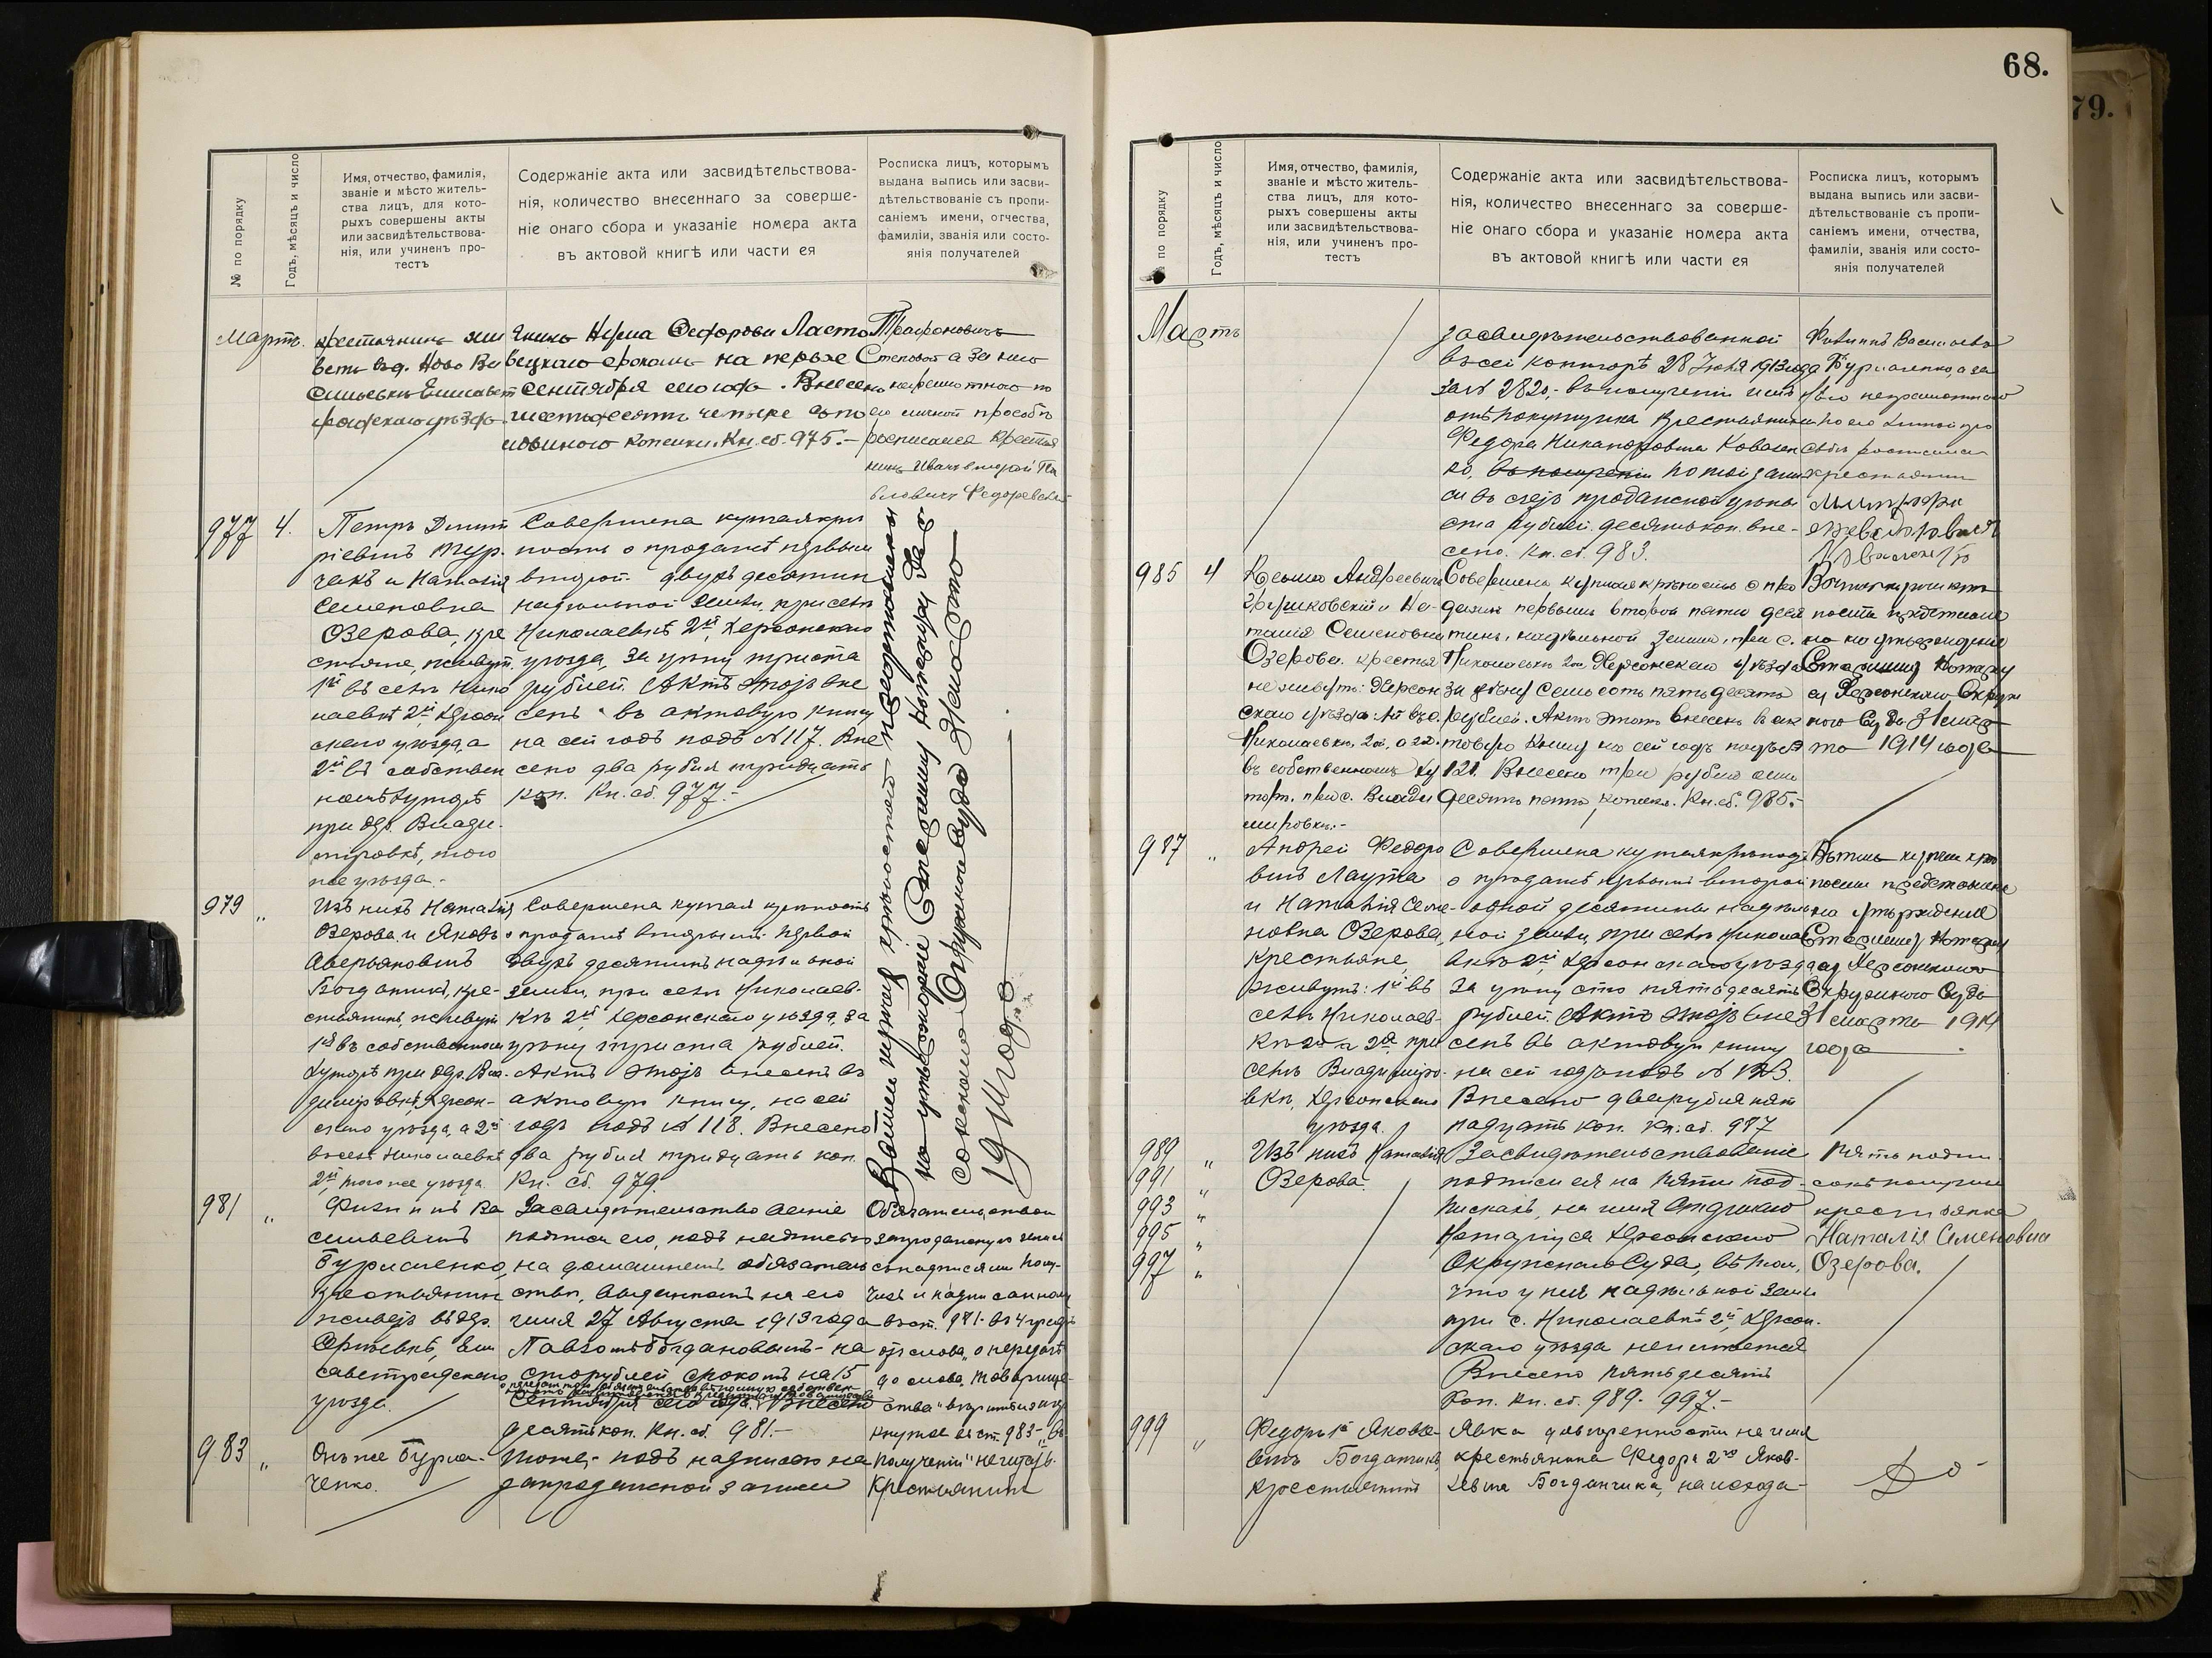 68.
79.
№ по порядку
Годъ, мѣсяцъ и число
Имя, отчество, фамилія,
званіе и мѣсто житель-
ства лицъ, для кото-
рыхъ совершены акты
или засвидѣтельствова-
нія, или учиненъ про-
тестъ
Содержаніе акта или засвидѣтельствова-
нія, количество внесеннаго за соверше-
ніе онаго сбора и указаніе номера акта
въ актовой книгѣ или части ея
Росписка лицъ, которымъ
выдана выпись или засви-
дѣтельствованіе съ пропи-
саніемъ имени, отчества,
фамиліи, званія или состо-
янія получателей
Мартъ.
крестьянинъ жи
ветъ въ д. Ново Ва
сильевкѣ Елисавет
градскаго уѣзда.
Ѳедорови Ласто
вецкаго срокомъ на первое
Сентября сего года. Внесено
шестьдесятъ четыре съ по
ловиною копейки. Кн. сб. 975.-
Трафоновичъ
Степовой а за него
неграмотнаго по
его личной просьбѣ
росписался крестья
нинъ Иванъ второй Па
вловичъ Федоревскій
977 4.
Петръ Дмит
ріевичъ Тур-
чакъ и Наталія
Семеновна
Озерова, кре
стьяне, живутъ
1й въ селѣ Нико
лаевкѣ 2й, Херсон
скаго уѣзда, а
2й въ собствен
номъ хуторѣ
при дер. Влади-
мировкѣ, того
же уѣзда.-
Совершена купчая крѣ
пость о продажѣ первымъ
второй двухъ десятин
надѣльной земли, при селѣ
Николаевкѣ 2й, Херсонскаго
уѣзда, за цѣну триста
рублей. Актъ этотъ вне
сенъ въ актовую книгу
на сей годъ подъ № 117. Вне
сено два рубля тридцать
коп. Кн. сб. 977.-
Взятыя купчія крѣпостей представлены
на утвержденіе Старшему Нотаріусу Хер
сонскаго Окружнаго Суда 31 марта
1914 года
979 "
Изъ нихъ Наталія
Озерова и Яковъ
Аверьяновичъ
Богданчикъ, кре-
стьянинъ, живутъ
1я въ собственномъ
хуторѣ при дер. Вла-
димировкѣ, Херсон-
скаго уѣзда, а 2й
въ селѣ Николаевкѣ
2й, того же уѣзда.
Совершена купчая крѣпость
о продажѣ вторымъ первой
двухъ десятинъ надѣльной
земли, при селѣ Николаев-
кѣ 2й, Херсонскаго уѣзда, за
цѣну триста рублей.
Актъ этотъ внесенъ въ
актовую книгу, на сей
годъ подъ № 118. Внесено
два рубля тридцать коп.
Кн. сб. 979.
981 "
Филиппъ Ва
сильевичъ
Бурмаченко,
крестьянинъ
живетъ въ дер.
Сергѣевкѣ, Ели
саветградскаго
уѣзда.
Засвидѣтельствованіе
подписи его, подъ надписью
на домашнемъ обязатель
ствѣ, выданномъ на его
имя 27 Августа 1913 года
Павломъ Богдановымъ - на
сторублей срокомъ на 15
Сентября сего года. Внесено
десять коп. Кн. сб. 981.-
Обязательство и
запроданную запись
съ надписями полу-
чилъ и надписанному
въ ст. 981- въ 4 графѣ
отъ слова "о передачѣ
до слова "товарище-
ства"
въ ст. 983- "въ
полученіи" не читать.
Крестьянинъ
983 "
Онъ же Бурма-
ченко.
Тоже,- подъ надписью на
запроданной записи
№ по порядку
Годъ, мѣсяцъ и число
Имя, отчество, фамилія,
званіе и мѣсто житель-
ства лицъ, для кото-
рыхъ совершены акты
или засвидѣтельствова-
нія, или учиненъ про-
тестъ
Содержаніе акта или засвидѣтельствова-
нія, количество внесеннаго за соверше-
ніе онаго сбора и указаніе номера акта
въ актовой книгѣ или части ея
Росписка лицъ, которымъ
выдана выпись или засви-
дѣтельствованіе съ пропи-
саніемъ имени, отчества,
фамиліи, званія или состо-
янія получателей
Мартъ
засвидѣтельствованной
въ сей конторѣ 28 Іюня 1913 года
за № 2820,- въ полученіи имъ
отъ покупщика крестьянина
Федора Никаноровича Ковален
ко, въ полученіи по той запи
си въ счетъ проданной цѣны
ста рублей. десять коп. вне-
сено. Кн. сб. 983.
Филиппъ Васильевъ
Бурмаченко, а за
него неграмотнаго
по его личной про
сьбѣ росписался
крестьянинъ
985 4
Козьма Андреевичъ
Грушковскій и На-
талія Семеновна
Озерова. крестья
не живутъ: Херсон
скаго уѣзда: 1й въ с.
Николаевкѣ, 2й, а 2я.
въ собственномъ ху
торѣ. при с. Влади
мировкѣ.-
Совершена купчая крѣпость о про
дажѣ первымъ второй пяти деся
тинъ, надѣльной земли, при с.
Николаевкѣ 2й Херсонскаго уѣзда
за цѣну семьсотъ пятьдесятъ
рублей. Актъ этотъ внесенъ въ ак
товую книгу на сей годъ подъ №
121. Внесено три рубля семь
десятъ пять, копеекъ. Кн. сб. 985.-
Взятая купчая крѣ
пость представле
на на утвержденіе
Старшему Нотаріу
су Херсонскаго Окруж
наго Суда 31 мар
та 1914 года
987 "
Андрей Федоро
вичъ Лаута
и Наталія Семе-
новна Озерова,
крестьяне,
живутъ: 1й въ
селѣ Николаев-
кѣ 2й а 2я при
селѣ Владимиро-
вкѣ, Херсонскаго
уѣзда.
Совершена купчая крѣпость
о продажѣ первымъ второй
одной десятины надѣль
ной земли, при селѣ Никола
евкѣ 2й, Херсонскаго уѣзда
за цѣну сто пятьдесятъ
рублей. Актъ этотъ вне
сенъ въ актовую книгу
на сей годъ подъ № 123.
Внесено два рубля пят
надцать коп. Кн. сб. 987
Взятая купчая крѣ
пость представлена
на утвержденіе
Старшему Нотаріу
су Херсонскаго
Окружного Суда
31 марта 1914
года
989 "
991 "
993 "
995 "
997 "
Изъ нихъ Наталія
Озерова.
Засвидѣтельствованіе
подписи ея на пяти под-
пискахъ, на имя Старшаго
Нотаріуса Херсонскаго
Окружнаго Суда, въ томъ,
что у нея надѣльной земли
при с. Николаевкѣ 2й, Херсон-
скаго уѣзда не имѣется
Внесено пятьдесятъ
коп. Кн. сб. 989- 997.-
Пять подпи-
сокъ получила
крестьянка
Наталія Семеновна
Озерова.
999 "
Федоръ 1й Яковле-
вичъ Богданчикъ,
крестьянинъ
Явка довѣренности на имя
крестьянина Федора 2го Яков-
левича Богданчика, на хода-